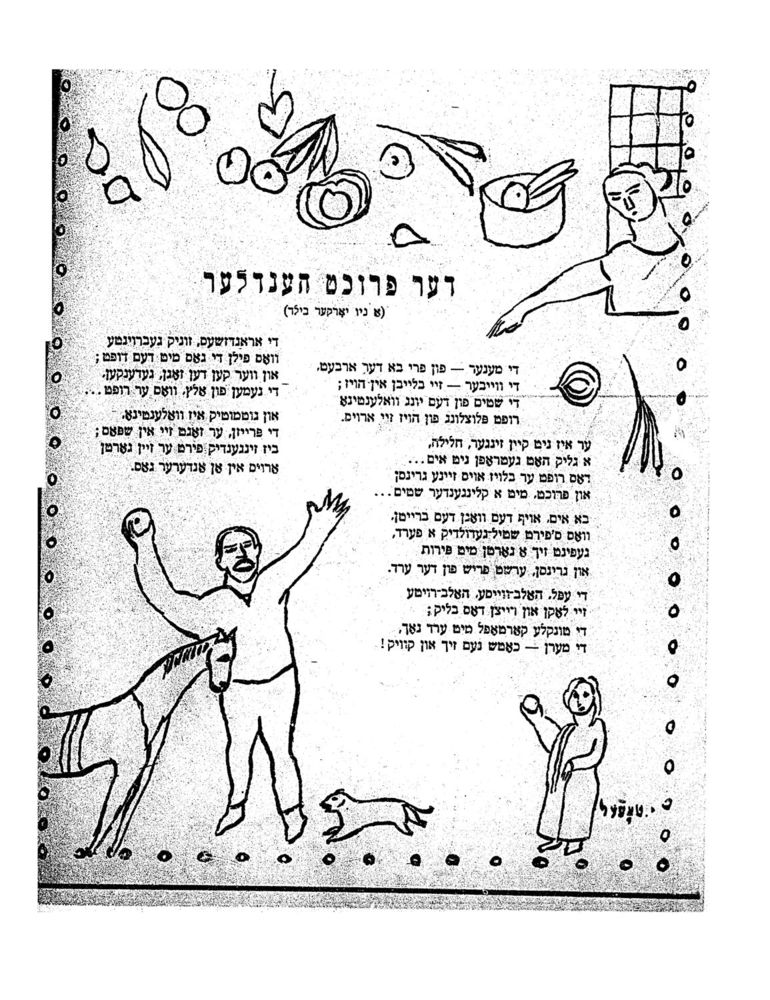 דער פרוכט הענדלער
(א ניו יאָרקער בילד)
די מענער — פון פרי בא דער ארבעט,
די ווייבער — זיי בלייבן אין הויז;
די שטים פון דעם יונג וואלענטינא
רופט פלוצלונג פון הויז זיי ארויס.
ער איז ניט קיין זינגער, חלילה,
א גליק האט געטראפן ניט אים...
דאס רופט ער בלויז אויס זיינע גרינסן
און פרוכט, מיט א קלינגענדער שטים...
בא אים, אויף דעם וואגן דעם ברייטן,
וואס ס'פירט שטיל־געדולדיק א פערד,
געפינט זיך א גארטן מיט פירות
און גרינסן, ערשט פריש פון דער ערד.
די עפל, האלב־ווייסע, האלב־רויטע
זיי לאקן און רייצן דאס בליק;
די טונקלע קארטאפל מיט ערד נאך,
די מערן — כאטש נעם זיך און קוויק!
די אראנדזשעס, זוניק געברוינטע
וואס פילן די גאס מיט דעם דופט;
און ווער קען דען זאגן, געדענקען,
די נעמען פון אלץ, וואס ער רופט...
און גוטמוטיק איז וואלענטינא,
די פרייזן, ער זאגט זיי אין שפאס;
ביז זינגענדיק פירט ער זיין גארטן
ארויס אין אן אנדערער גאס.
י. טאָפעל